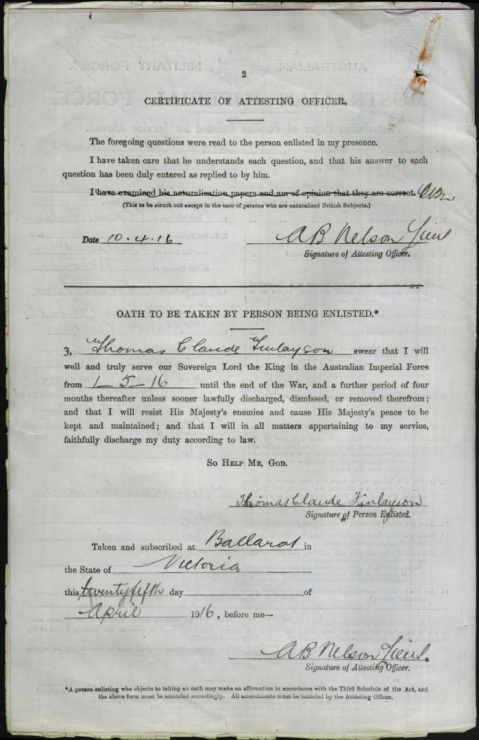 2
CERTIFICATE OF ATTESTING OFFICER.
The foregoing questions were read to the person enlisted in my presence.
I have taken care that he understands each question, and that his answer to each
question has been duly entered as replied to by him.
I have examined his naturalization papers and am of opinion that they are correct.
(This to be struck out except in the case of persons who are naturalized British Subjects.)
Date 10.4.16 AB Nelson Lieut
Signature of Attesting Officer.
OATH TO BE TAKEN BY PERSON BEING ENLISTED.*
I, Thomas Claude Finlayson swear that I will
well and truly serve our Sovereign Lord the King in the Australian Imperial Force
from 1-5-16 until the end of the War, and a further period of four
months thereafter unless sooner lawfully discharged, dismissed, or removed therefrom;
and that I will resist His Majesty's enemies and cause His Majesty's peace to be
kept and maintained; and that I will in all matters appertaining to my service,
faithfully discharge my duty according to law.
SO HELP ME, GOD.
Thomas Claude Finlayson
Signature of Person Enlisted.
Taken and subscribed at Ballarat in
the State of Victoria
this twentyfifth day of
April 1916, before me—
AB Nelson Lieut.
Signature of Attesting Officer.
*A person enlisting who objects to taking an oath may make an affirmation in accordance with the Third Schedule of the Act, and
the above form must be amended accordingly. All amendments must be initialed by the Attesting Officer.